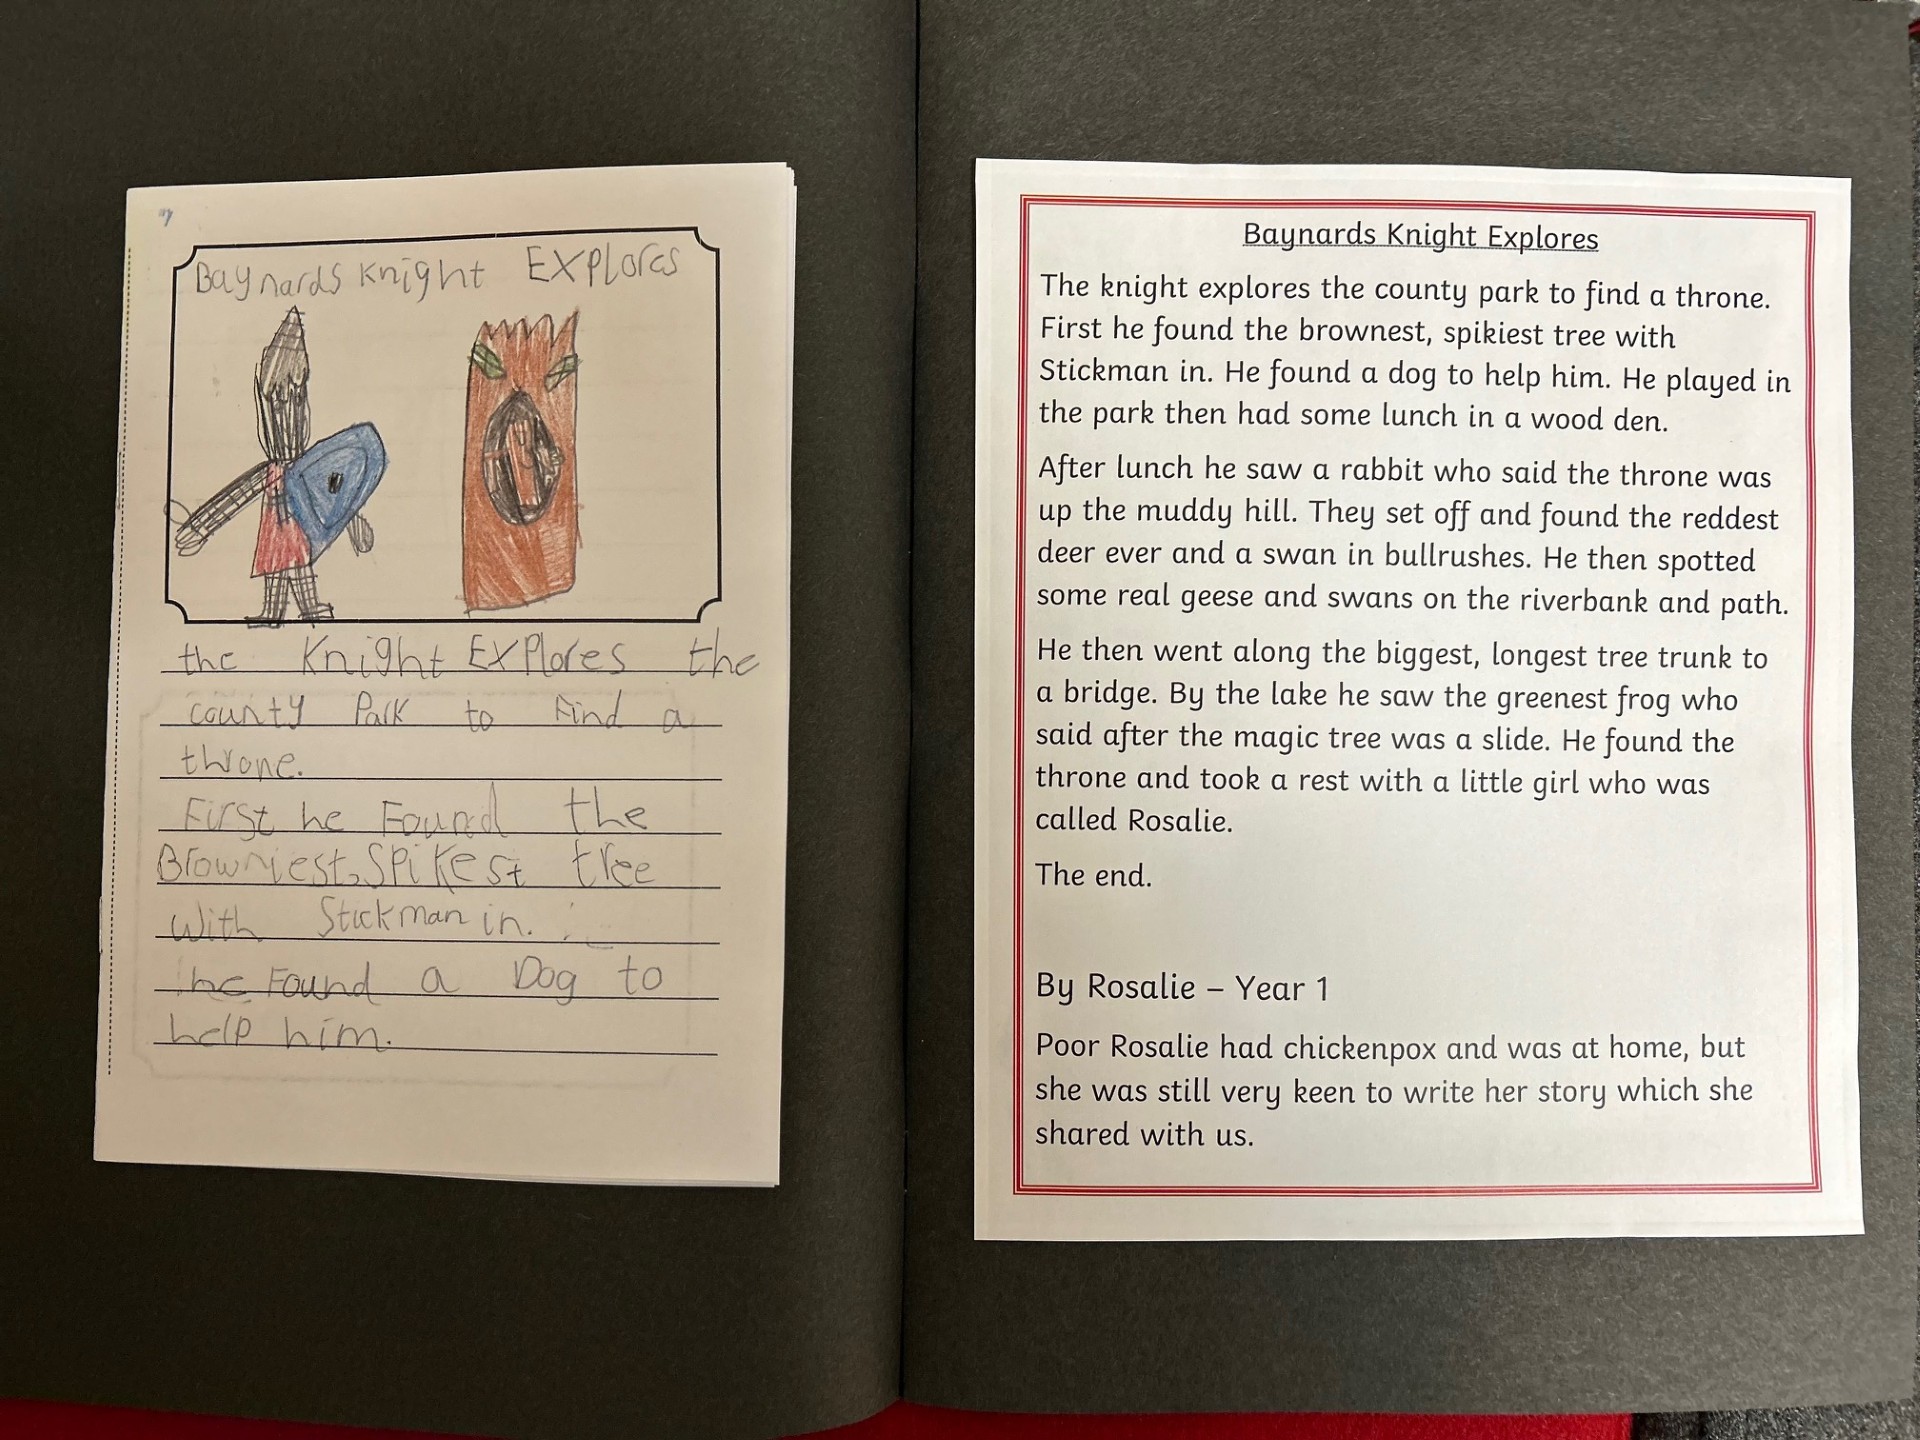 Baynards Knight EXPlores
the Knight EXPlores the
county Park to Find a
throne.
First he Found the
Browniest, SPikest tree
with Stickman in.
he Found a Dog to
help him.
Baynards Knight Explores
The knight explores the county park to find a throne.
First he found the brownest, spikiest tree with
Stickman in. He found a dog to help him. He played in
the park then had some lunch in a wood den.
After lunch he saw a rabbit who said the throne was
up the muddy hill. They set off and found the reddest
deer ever and a swan in bullrushes. He then spotted
some real geese and swans on the riverbank and path.
He then went along the biggest, longest tree trunk to
a bridge. By the lake he saw the greenest frog who
said after the magic tree was a slide. He found the
throne and took a rest with a little girl who was
called Rosalie.
The end.
By Rosalie – Year 1
Poor Rosalie had chickenpox and was at home, but
she was still very keen to write her story which she
shared with us.